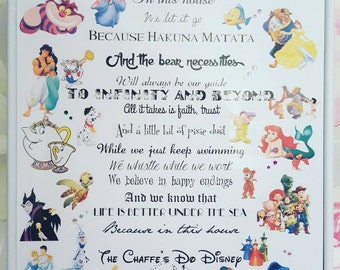 In this house
We let it go
BECAUSE HAKUNA MATATA
And the bear necessities
Will always be our guide
TO INFINITY AND BEYOND
All it takes is faith, trust
And a little bit of pixie dust
While we just keep swimming
We whistle while we work
We believe in happy endings
And we know that
LIFE IS BETTER UNDER THE SEA
Because in this house
THE CHAFFE'S DO DISNEY